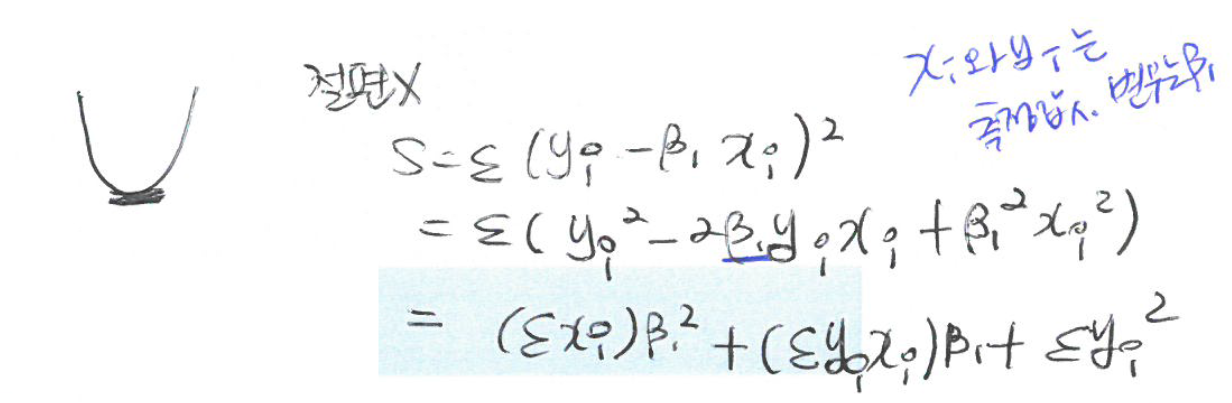 절편X
x_i와 y_i는
측정값. 변수는 β_1
S = Σ (y_i - β_1 x_i)^2
= Σ ( y_i^2 - 2β_1 y_i x_i + β_1^2 x_i^2 )
= (Σx_i) β_1^2 + (Σy_i x_i) β_1 + Σy_i^2